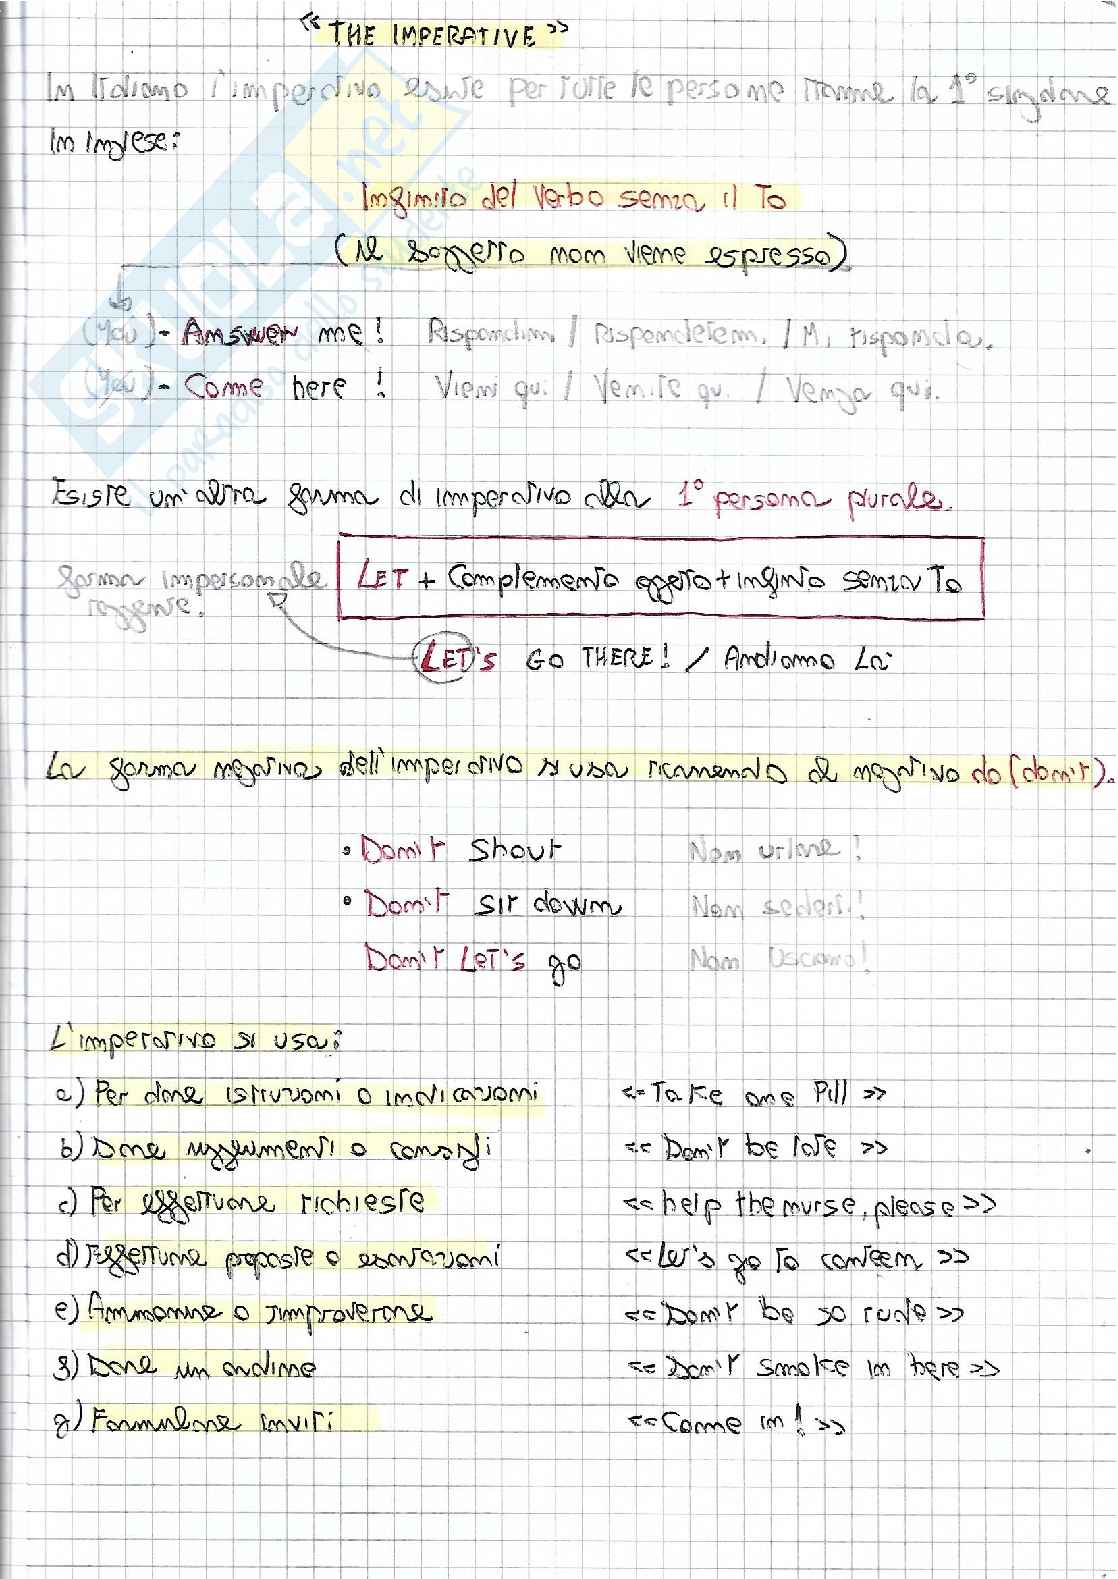 « THE IMPERATIVE »
In Italiano l'imperativo esiste per tutte le persone tranne la 1° singolare
In Inglese:
Infinito del Verbo senza il To
(Il soggetto non viene espresso)
(You) - Answer me! Rispondimi / Rispondetemi / Mi risponda.
(You) - Come here! Vieni qui / Venite qui / Venga qui.
Esiste un'altra forma di imperativo alla 1° persona plurale.
forma impersonale LET + Complemento oggetto + infinito senza To
reggente.
LET's GO THERE! / Andiamo Là
La forma negativa dell'imperativo si usa ricorrendo al negativo do (don't).
• Don't shout Non urlare!
• Don't sit down Non sederti!
Don't LET's go Non Usciamo!
L'imperativo si usa:
a) Per dare istruzioni o indicazioni «Take one Pill»
b) Dare suggerimenti o consigli «Don't be late»
c) Per effettuare richieste «help the nurse, please»
d) Effettuare proposte o esortazioni «Let's go to canteen»
e) Ammonire o rimproverare «Don't be so rude»
f) Dare un ordine «Don't smoke in here»
g) Formulare inviti «Come in!»
skuola.net